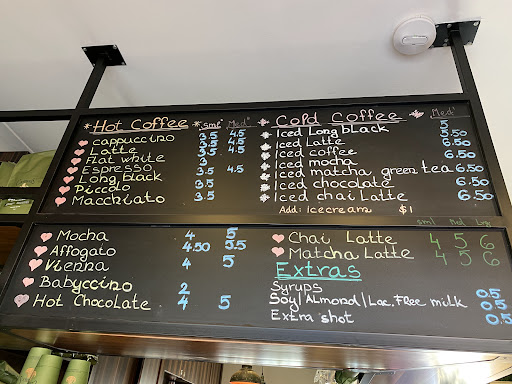 Hot Coffee sml Med
Cappuccino 3.5 4.5
Latte 3.5 4.5
Flat white 3.5 4.5
Espresso 3
Long black 3.5 4.5
Piccolo 3.5
Macchiato 3.5
Cold Coffee Med
Iced Long black 5
Iced Latte 5.50
Iced coffee 6.50
Iced mocha 6.50
Iced matcha green tea 6.50
Iced chocolate 6.50
Iced chai Latte 6.50
Add: icecream $1
Mocha 4 5
Affogato 4.50 5.5
Vienna 4 5
Babyccino 2
Hot Chocolate 4 5
sml Med Lrg
Chai Latte 4 5 6
Matcha Latte 4 5 6
Extras
Syrups 0.5
Soy/Almond/Lac. Free milk 0.5
Extra shot 0.5